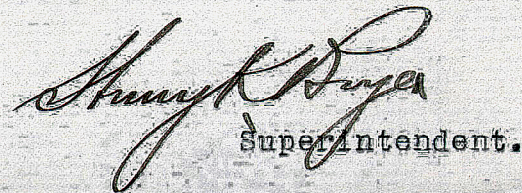 Henry K Boyer
Superintendent.